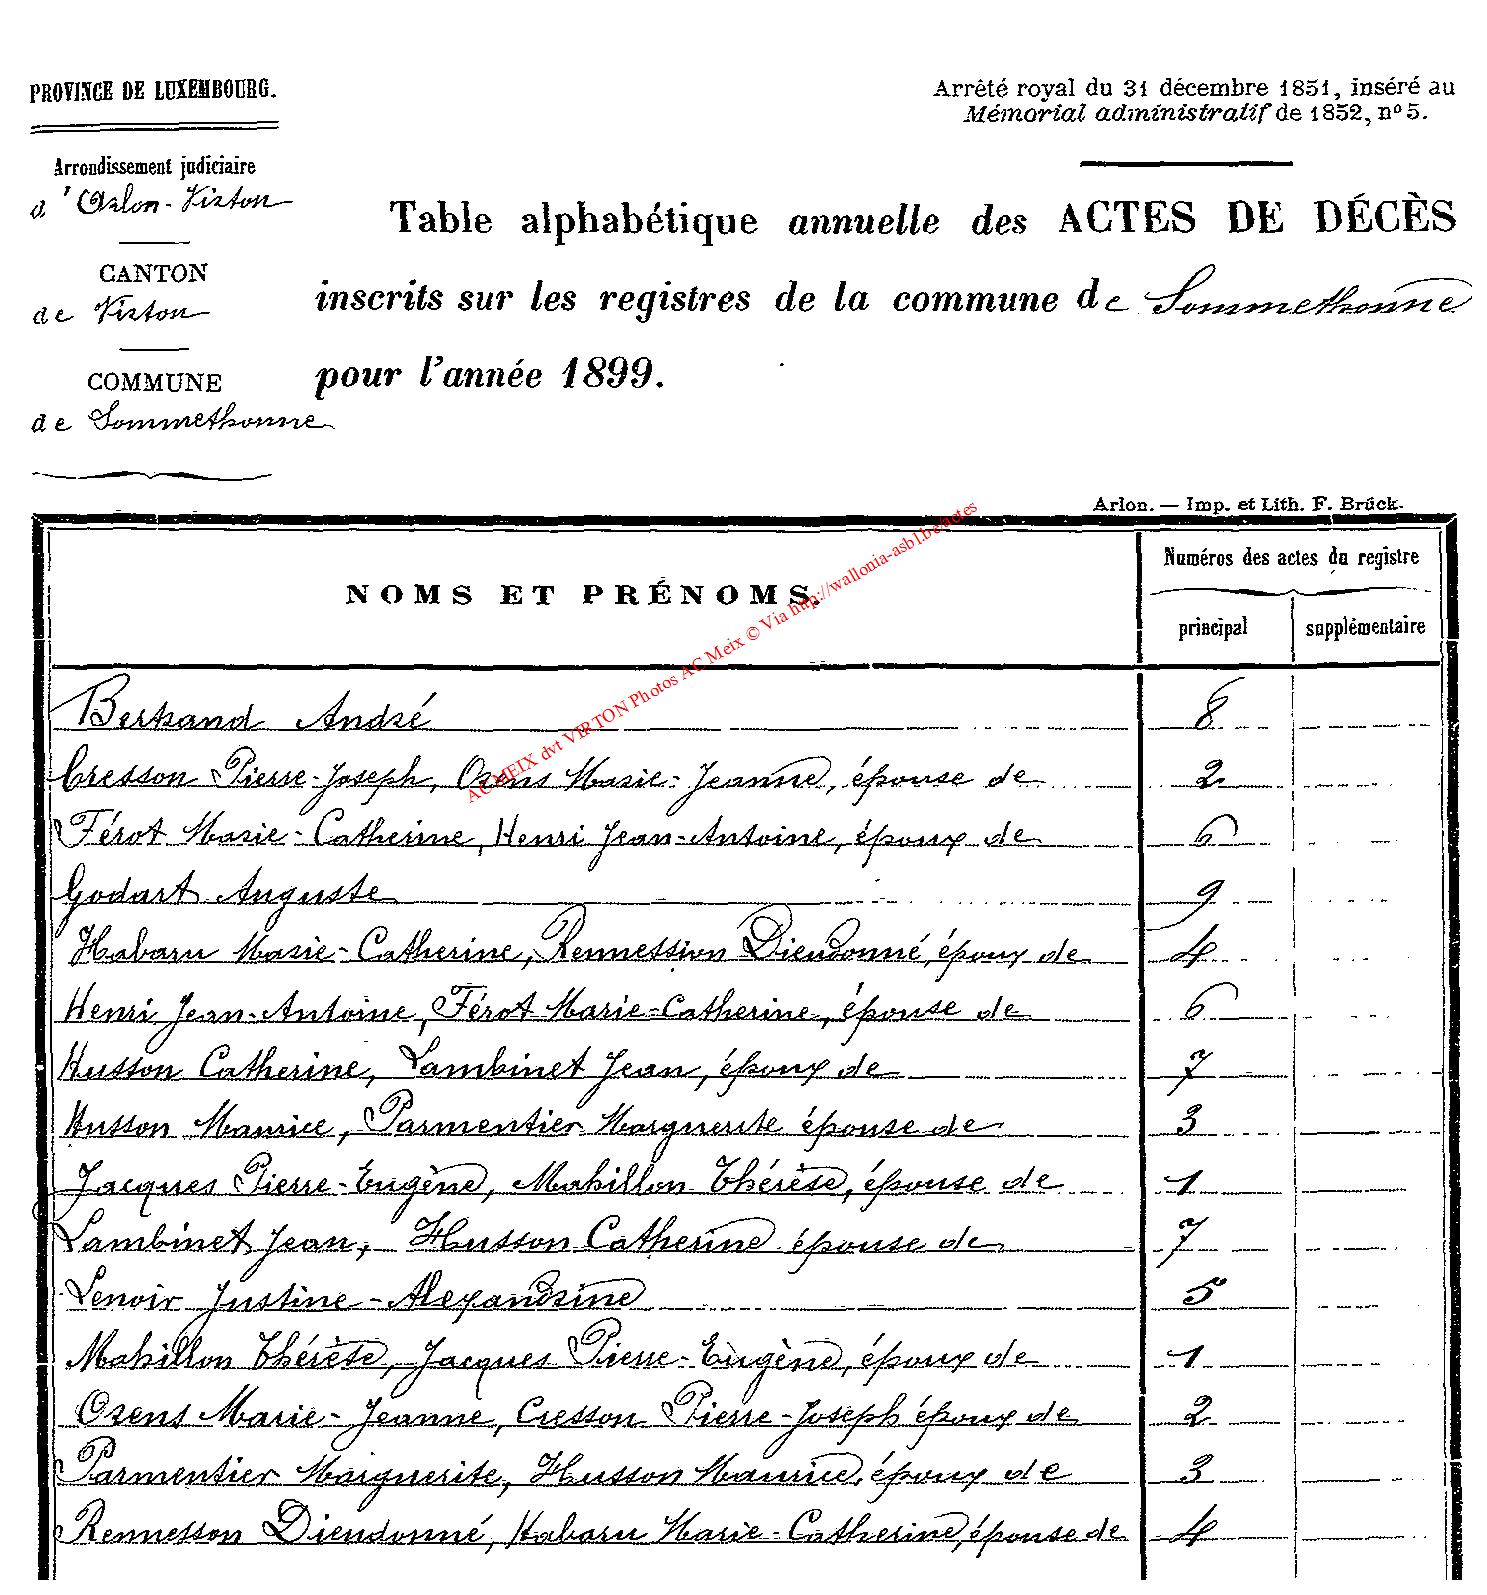 PROVINCE DE LUXEMBOURG.
Arrondissement judiciaire
d'Arlon-Virton
CANTON
de Virton
COMMUNE
de Sommethonne
Arrêté royal du 31 décembre 1851, inséré au
Mémorial administratif de 1852, nº 5.
Table alphabétique annuelle des ACTES DE DÉCÈS
inscrits sur les registres de la commune de Sommethonne
pour l'année 1899.
Arlon. — Imp. et Lith. F. Brück.
NOMS ET PRÉNOMS.
Numéros des actes du registre
principal supplémentaire
AC MEIX dvt VIRTON Photos AC Meix © Via http://wallonia-asbl.be/actes
Bertrand André 8
Cresson Pierre-Joseph, Ozens Marie-Jeanne, épouse de 2
Férot Marie-Catherine, Henri Jean-Antoine, époux de 6
Godart Auguste 9
Habaru Marie-Catherine, Rennession Dieudonné, époux de 4
Henri Jean-Antoine, Férot Marie-Catherine, épouse de 6
Husson Catherine, Lambinet Jean, époux de 7
Husson Maurice, Parmentier Marguerite épouse de 3
Jacques Pierre-Eugène, Mahillon Thérèse, épouse de 1
Lambinet Jean, Husson Catherine épouse de 7
Lenoir Justine-Alexandrine 5
Mahillon Thérèse, Jacques Pierre-Eugène, époux de 1
Ozens Marie-Jeanne, Cresson Pierre-Joseph époux de 2
Parmentier Marguerite, Husson Maurice, époux de 3
Rennesson Dieudonné, Habaru Marie-Catherine, épouse de 4